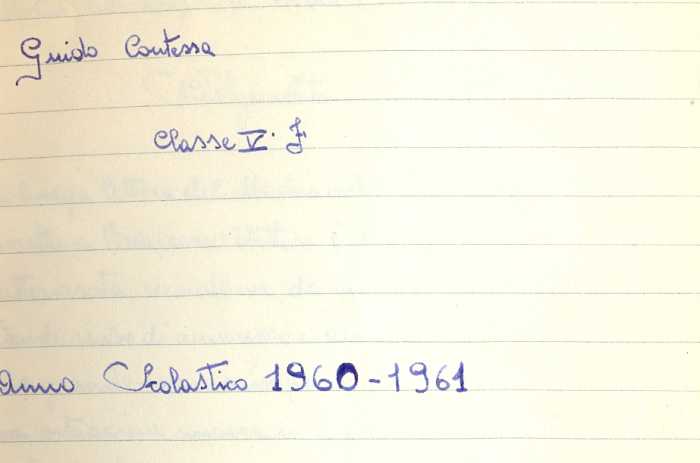 Guido Contessa
Classe V. F
Anno Scolastico 1960-1961